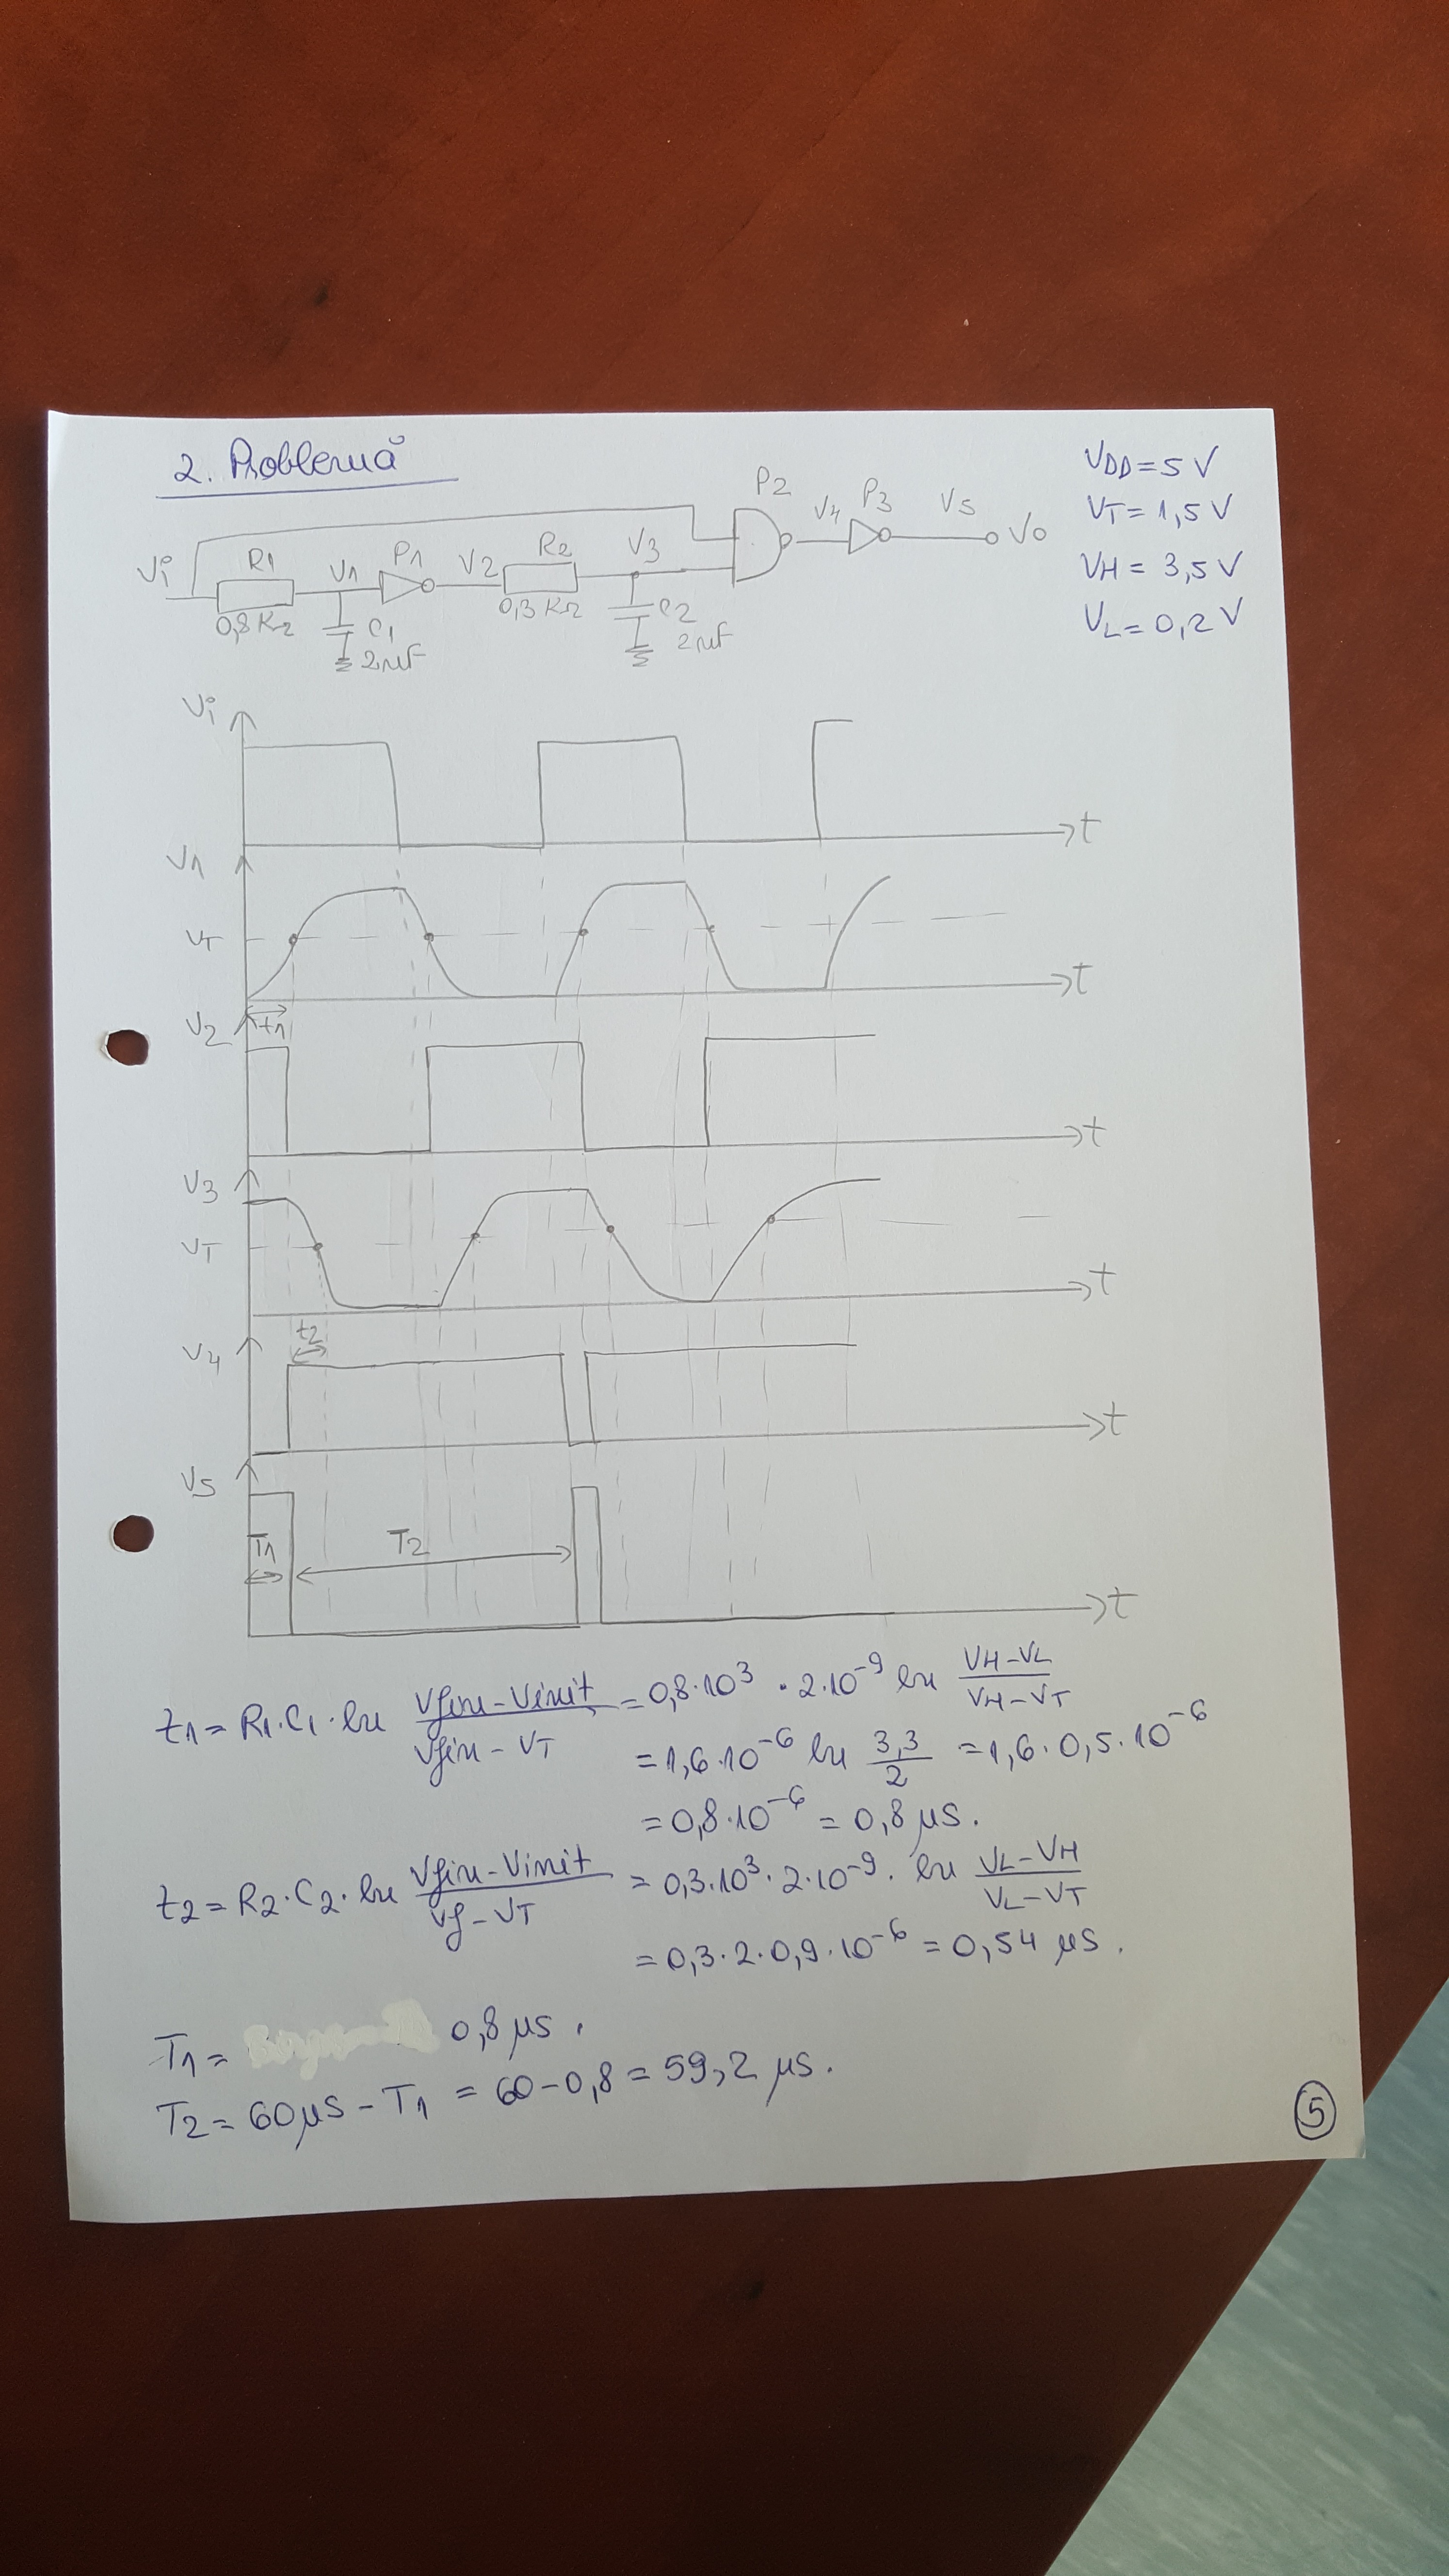 2. Problemă
VDD = 5 V
VT = 1,5 V
VH = 3,5 V
VL = 0,2 V
Vi R1 V1 P1 V2 R2 V3 P2 V4 P3 V5 Vo
0,8 KΩ C1 2nF 0,3 KΩ C2 2nF
Vi t
V1
VT
t
t1
V2
t
V3
VT
t
t2
V4
t
V5
T1 T2
t
t1 = R1·C1·ln (Vfin - Vinit)/(Vfin - VT) = 0,8·10³ · 2·10⁻⁹ ln (VH - VL)/(VH - VT)
= 1,6·10⁻⁶ ln 3,3/2 = 1,6·0,5·10⁻⁶
= 0,8·10⁻⁶ = 0,8 µs.
t2 = R2·C2·ln (Vfin - Vinit)/(Vf - VT) = 0,3·10³·2·10⁻⁹· ln (VL - VH)/(VL - VT)
= 0,3·2·0,9·10⁻⁶ = 0,54 µs.
T1 = 0,8 µs.
T2 = 60µs - T1 = 60 - 0,8 = 59,2 µs.
5